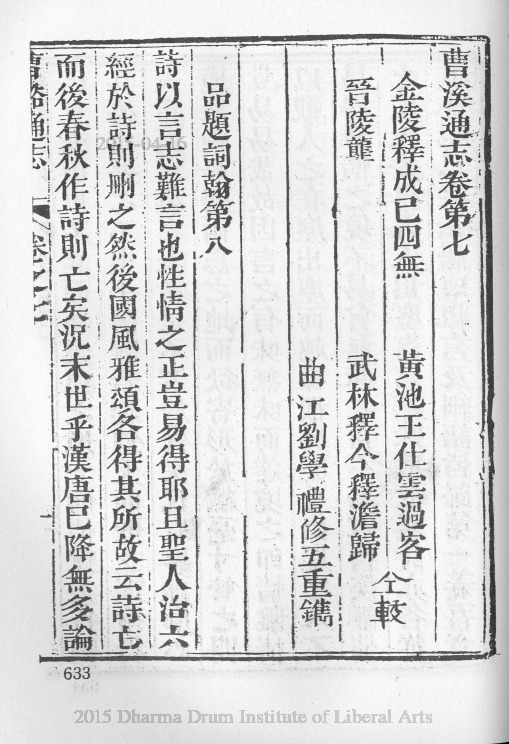 曹溪通志卷第七
金陵釋成已四無 黃池王仕雲過客
晉陵龔 武林釋今釋澹歸 仝較
曲江劉學禮修五重鐫
品題詞翰第八
詩以言志難言也性情之正豈易得耶且聖人治六
經於詩則刪之然後國風雅頌各得其所故云詩亡
而後春秋作詩則亡矣況末世乎漢唐已降無多論
曹谿通志 卷之七
633
2015 Dharma Drum Institute of Liberal Arts